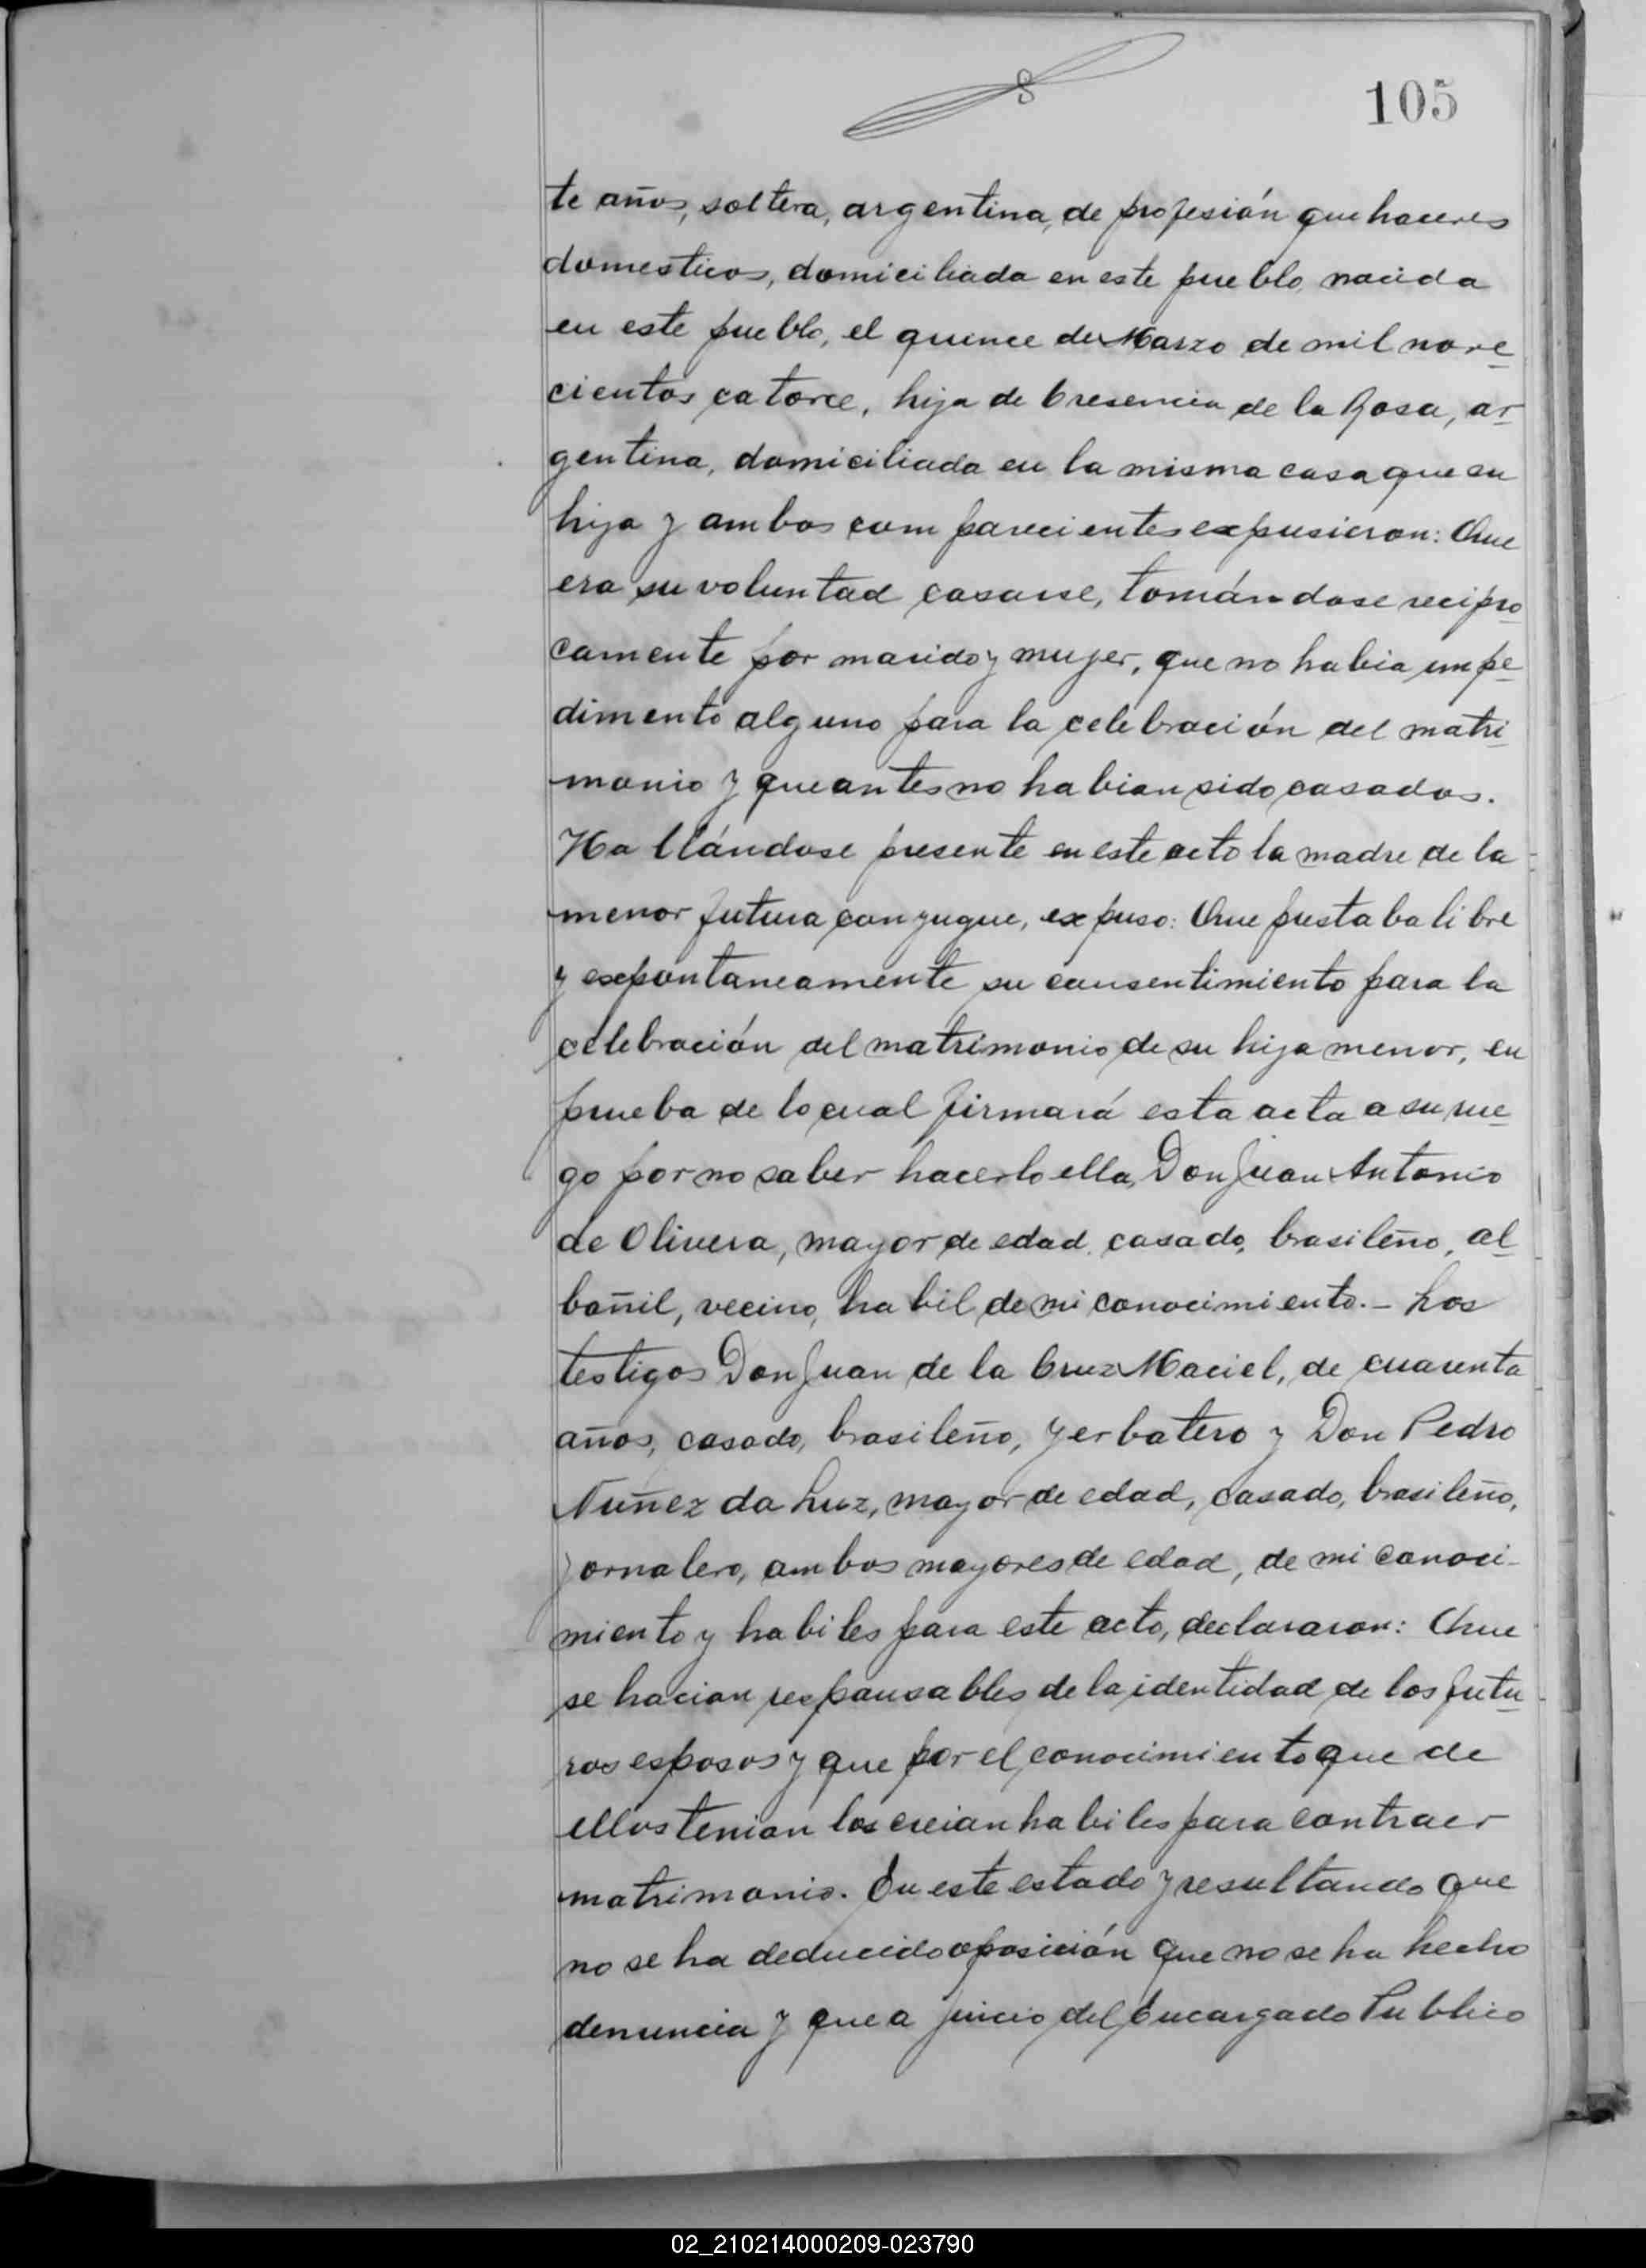 105
te años, soltera, argentina, de profesión quehaceres
domesticos, domiciliada en este pueblo, nacida
en este pueblo, el quince de Marzo de mil nove
cientos catorce, hija de Cresencia de la Rosa, ar
gentina, domiciliada en la misma casa que su
hija y ambos comparecientes expusieron: Que
era su voluntad casarse, tomándose recipro
camente por marido y mujer, que no habia impe
dimento alguno para la celebración del matri
monio y que antes no habian sido casados.
Hallándose presente en este acto la madre de la
menor futura conyugue, expuso: Que prestaba libre
y expontaneamente su consentimiento para la
celebración del matrimonio de su hija menor, en
prueba de lo cual firmará esta acta a su rue
go por no saber hacerlo ella, Don Juan Antonio
de Olivera, mayor de edad, casado, brasileño, al
bañil, vecino, habil de mi conocimiento.- Los
testigos Don Juan de la Cruz Maciel, de cuarenta
años, casado, brasileño, yerbatero y Don Pedro
Nuñez da Luz, mayor de edad, casado, brasileño,
jornalero, ambos mayores de edad, de mi conoci-
miento y habiles para este acto, declararon: Que
se hacian responsables de la identidad de los futu
ros esposos y que por el conocimiento que de
ellos tenian los creian habiles para contraer
matrimonio. En este estado y resultando que
no se ha deducido oposición que no se ha hecho
denuncia y que a juicio del Encargado Publico
02_210214000209-023790